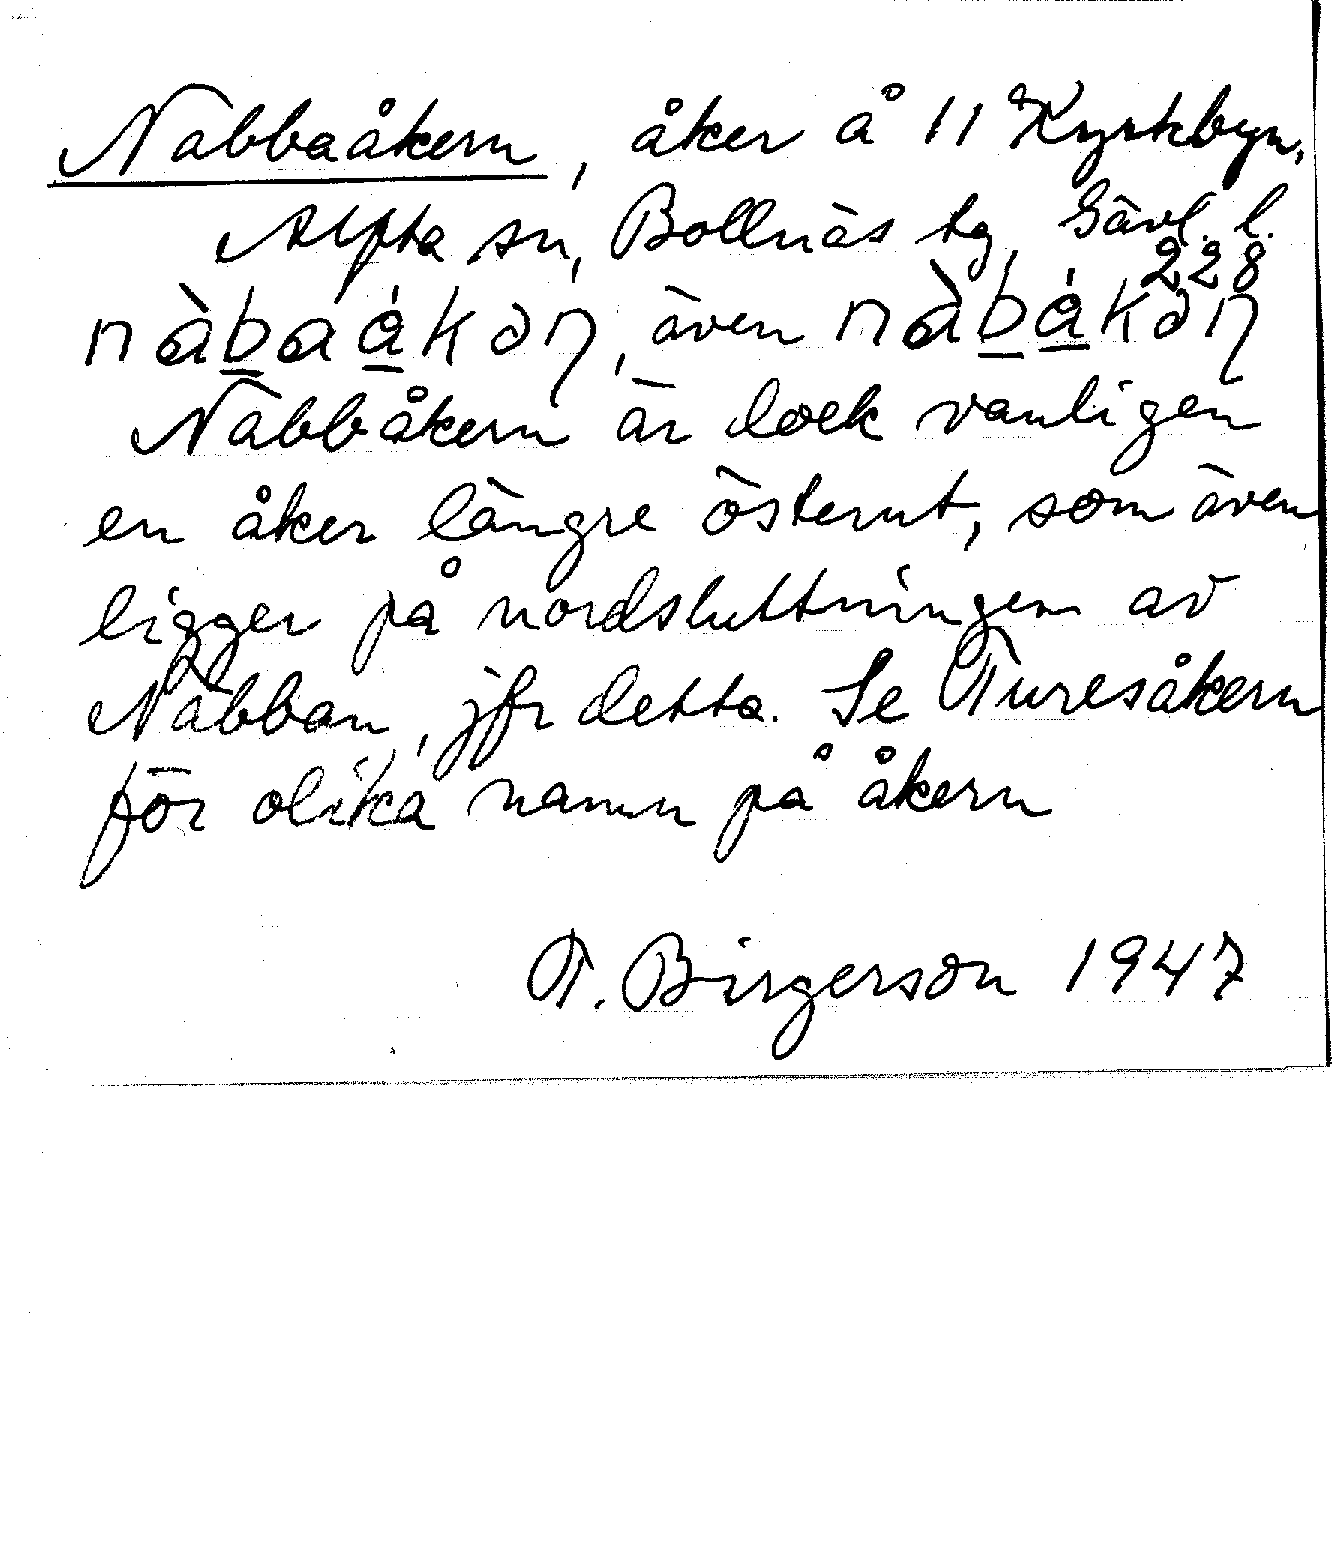 Näbbaåkern, åker å 11ª Kyrkbyn,
Alfta sn, Bollnäs tg, Gävl. l.
228
nàbaákəɳ, även nàbákəɳ
Näbbåkern är dock vanligen
en åker längre österut, som även
ligger på nordsluttningen av
Näbban, jfr detta. Se Turesåkern
för olika namn på åkern
T. Birgerson 1947